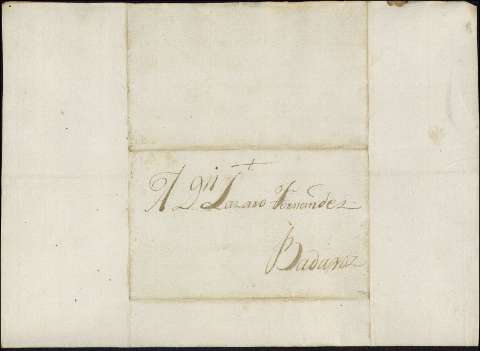 A Dn Lazaro Fernandez
Badaran